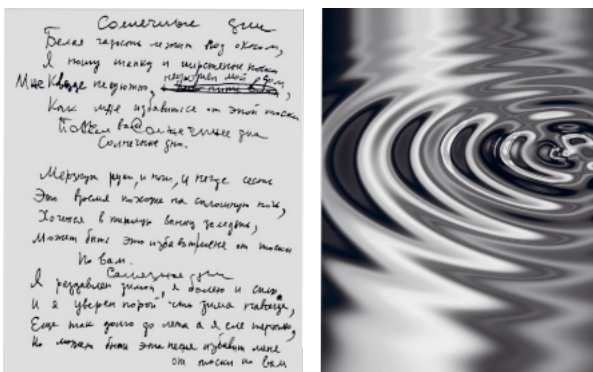 Солнечные дни
Белая гадость лежит под окном,
Я ношу шапку и шерстяные носки
Мне везде неуютно, неуютен мой дом,
Как мне избавиться от этой тоски
По вам Солнечные дни
Солнечные дни.
Мерзнут руки, и ноги, и негде сесть
Это время похоже на сплошную ночь,
Хочется в теплую ванну залезть,
Может быть это избавит меня от тоски
По вам.
Солнечные дни
Я раздавлен зимой, я болею и сплю,
И я уверен порой, что зима навсегда,
Еще так долго до лета а я еле терплю,
Но может быть эта песня избавит меня
от тоски по вам